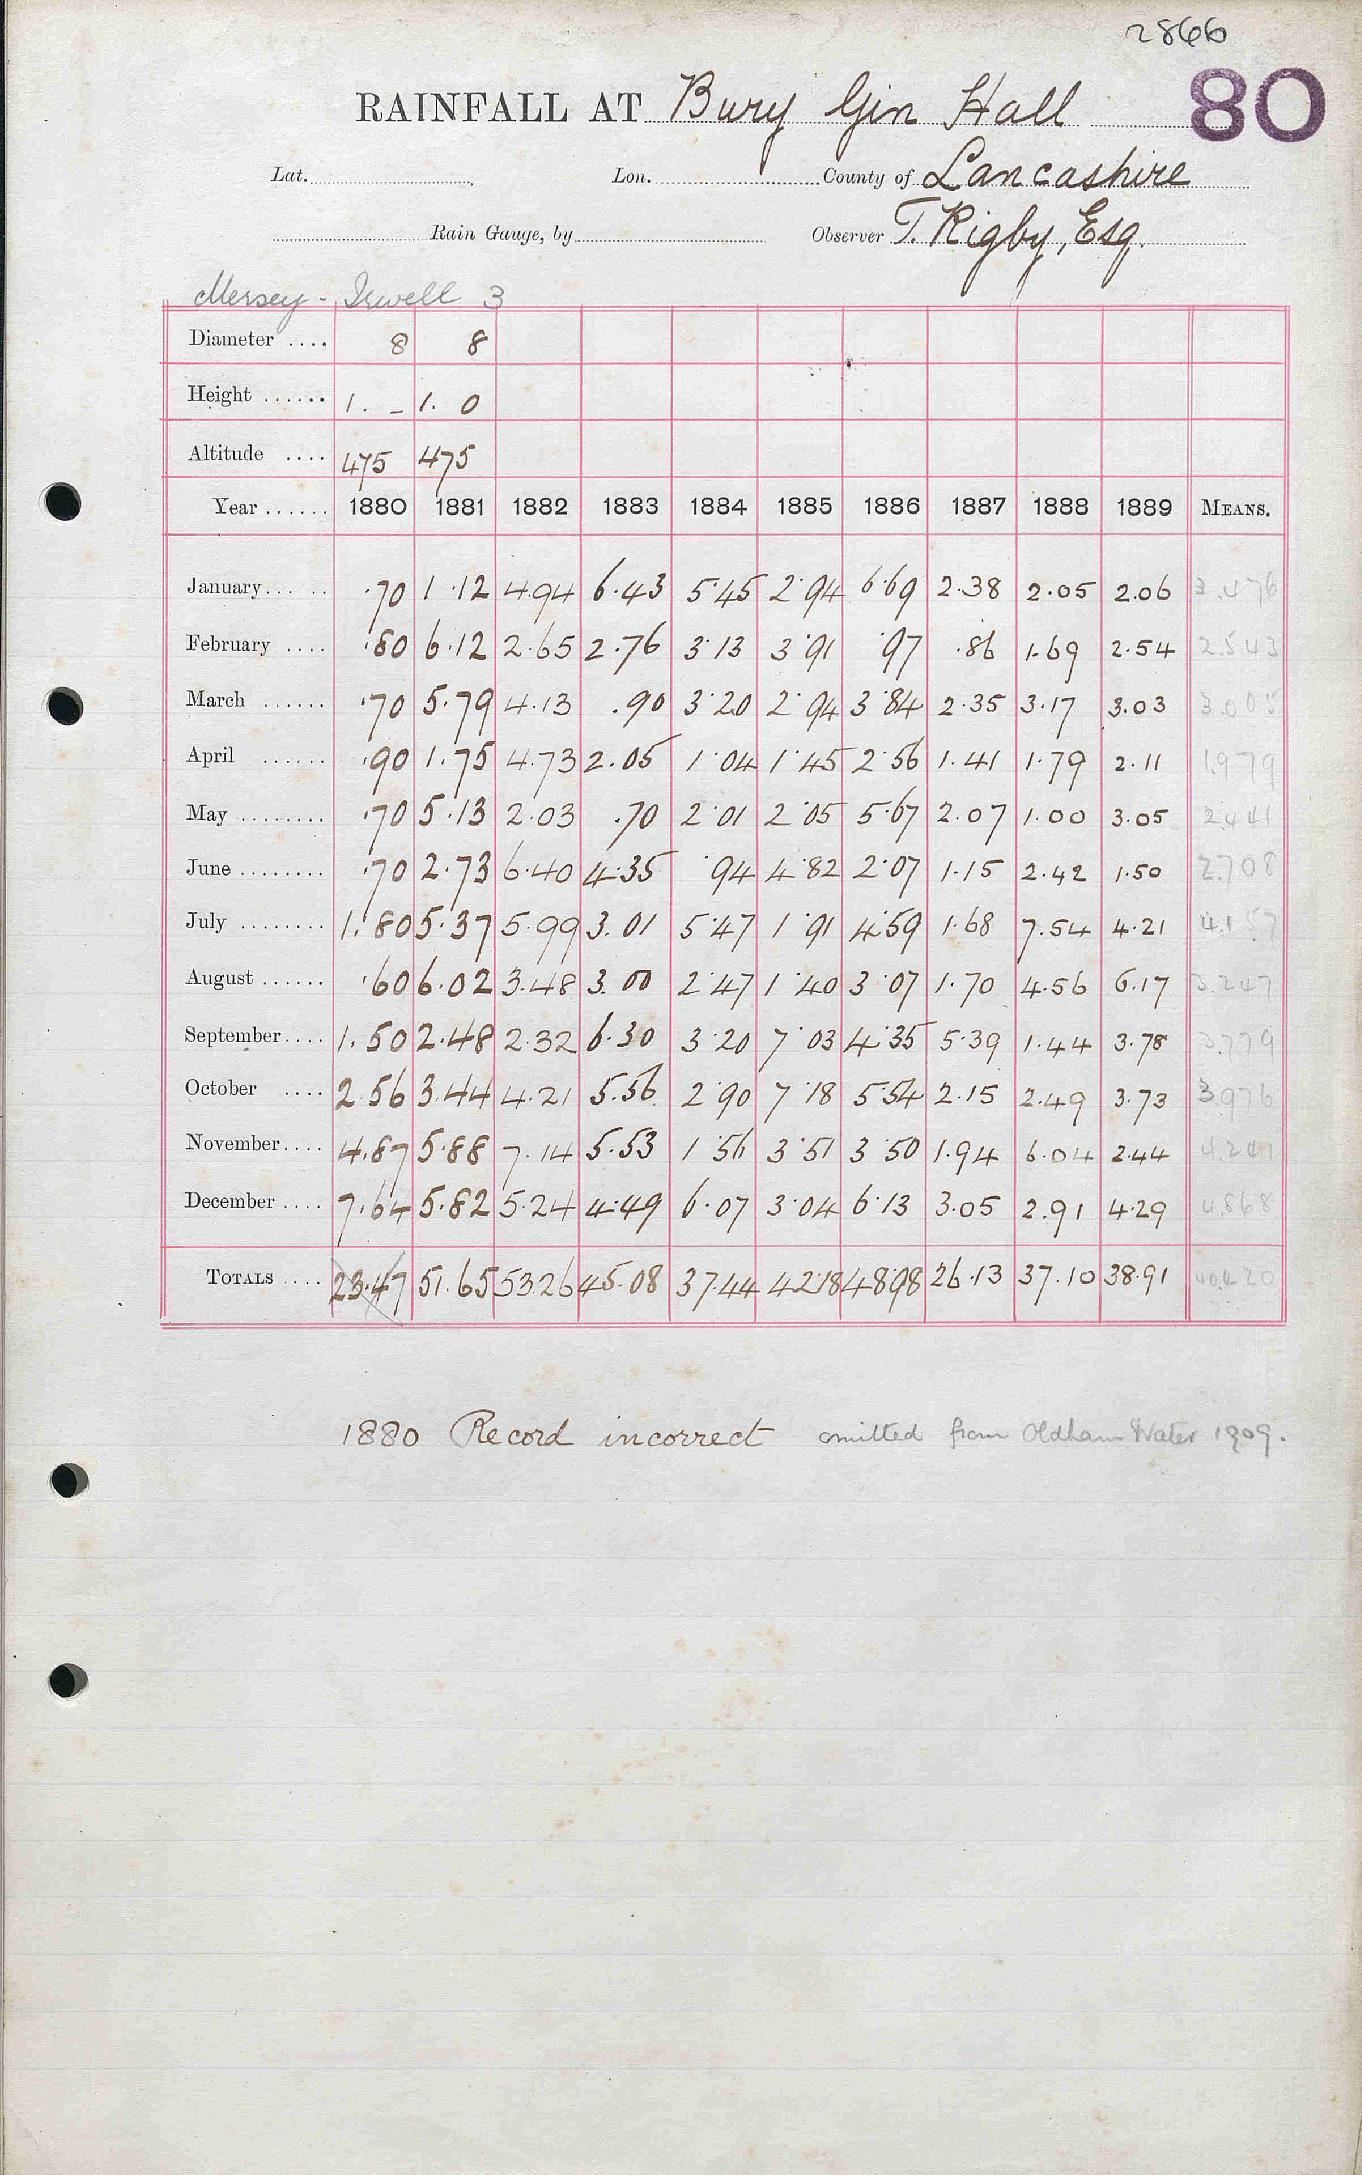 2866
80
RAINFALL AT Bury Gin Hall
Lat. Lon. County of Lancashire
Rain Gauge, by Observer T. Rigby, Esq.
Mersey - Irwell 3
Diameter .... 8 8
Height ...... 1. - 1. 0
Altitude .... 475 475
Year ...... 1880 1881 1882 1883 1884 1885 1886 1887 1888 1889 MEANS.
January...... .70 1.12 4.94 6.43 5.45 2.94 6.69 2.38 2.05 2.06 3.476
February .... .80 6.12 2.65 2.76 3.13 3.91 .97 .86 1.69 2.54 2.543
March ...... .70 5.79 4.13 .90 3.20 2.94 3.84 2.35 3.17 3.03 3.005
April ...... .90 1.75 4.73 2.05 1.04 1.45 2.56 1.41 1.79 2.11 1.979
May ........ .70 5.13 2.03 .70 2.01 2.05 5.67 2.07 1.00 3.05 2.441
June ........ .70 2.73 6.40 4.35 .94 4.82 2.07 1.15 2.42 1.50 2.708
July ........ 1.80 5.37 5.99 3.01 5.47 1.91 4.59 1.68 7.54 4.21 4.157
August ...... .60 6.02 3.48 3.00 2.47 1.40 3.07 1.70 4.56 6.17 3.247
September.... 1.50 2.48 2.32 6.30 3.20 7.03 4.35 5.39 1.44 3.78 3.779
October .... 2.56 3.44 4.21 5.56 2.90 7.18 5.54 2.15 2.49 3.73 3.976
November.... 4.87 5.88 7.14 5.53 1.56 3.51 3.50 1.94 6.04 2.44 4.241
December .... 7.64 5.82 5.24 4.49 6.07 3.04 6.13 3.05 2.91 4.29 4.868
TOTALS .... 23.47 51.65 53.26 45.08 37.44 42.18 48.98 26.13 37.10 38.91 40.420
1880 Record incorrect omitted from Oldham Water 1909.